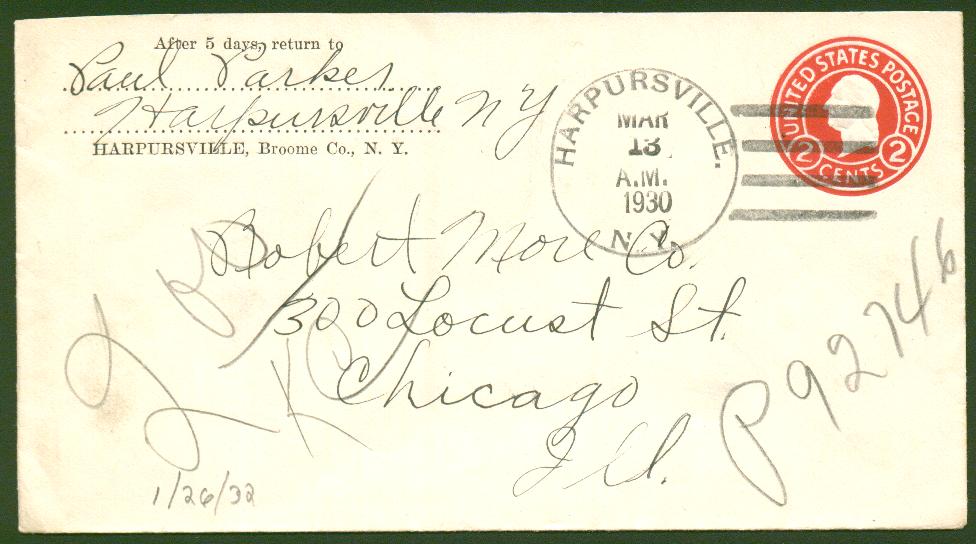 After 5 days, return to
Paul Parker
Harpursville NY
HARPURSVILLE, Broome Co., N. Y.
HARPURSVILLE.
MAR
13
A.M.
1930
N.Y.
UNITED STATES POSTAGE
2 CENTS 2
Robert More Co.
300 Locust St.
Chicago
Ill.
P92746
1/26/32